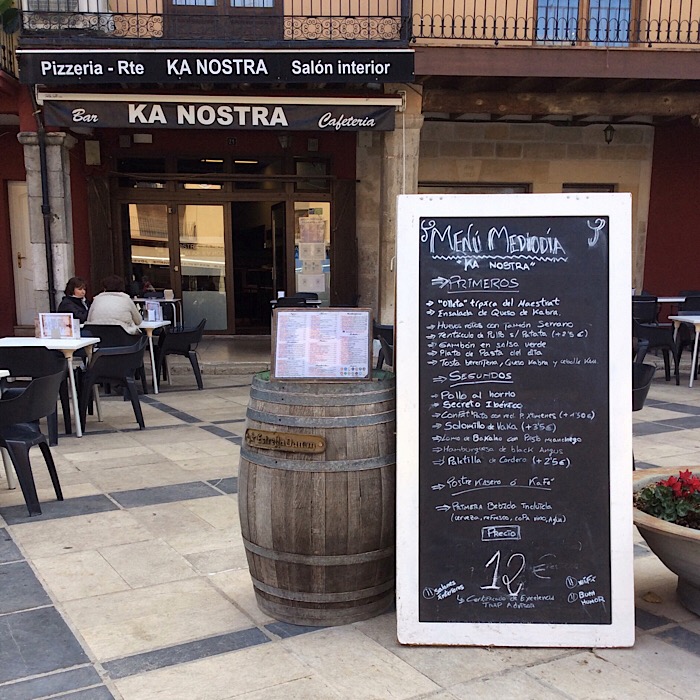 Pizzeria - Rte KA NOSTRA Salón interior
Bar KA NOSTRA Cafeteria
MENÚ MEDIODÍA
"KA NOSTRA"
PRIMEROS
→ "Olleta" típica del Maestrat
→ Ensalada de Queso de Kabra
→ Huevos rotos con jamón Serrano
→ Tentáculo de Pulpo s/ Patata (+2'5€)
→ Gambón en salsa verde
→ Plato de Pasta del día
→ Tosta berenjena, Queso Kabra y cebolla Kar.
SEGUNDOS
→ Pollo al horno
→ Secreto Ibérico
→ Confit Pato con red. P. Ximenes (+1'50€)
→ Solomillo de Vaka (+3'5€)
→ Lomo de Bakalao con Pisto manchego
→ Hamburguesa de black Angus
→ Paletilla de Cordero (+2'5€)
→ Postre Kasero ó Kafé
→ Primera Bebida Incluida
(cerveza, refresco, copa vino, Agua)
PRECIO
12 €
Salones interiores
Wifi
Buen HUMOR
Certificado de Excelencia
TRIP Advisor